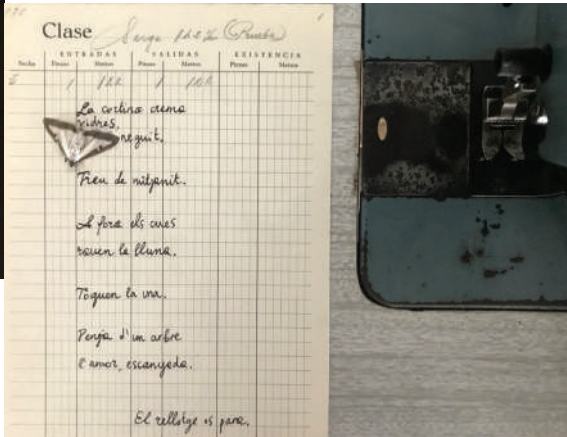 Clase Sarga (Prueba)
ENTRADAS SALIDAS EXISTENCIA
Fecha Piezas Metros Piezas Metros Piezas Metros
1 1
La cortina crema
vidres,
neguit.
Treu de mitjanit.
A fora els cucs
rouen la lluna.
Toquen la una.
Penja d'un arbre
l'amor, escanyada.
El rellotge es para.